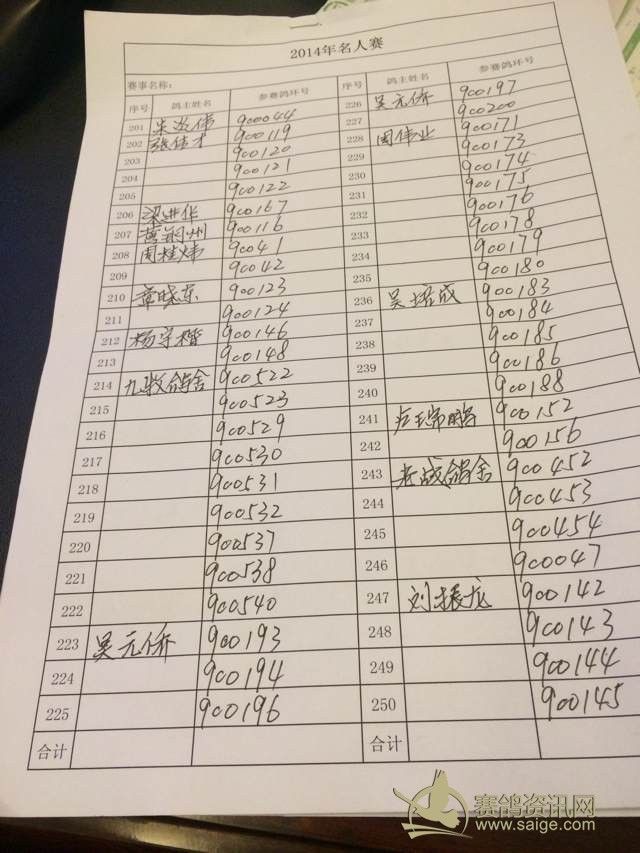 2014年名人赛
赛事名称:
序号 鸽主姓名 参赛鸽环号 序号 鸽主姓名 参赛鸽环号
201 900044 226 吴元侨 900197
202 张伟才 900119 227 900200
203 900120 228 周伟业 900171
204 900121 229 900173
205 900122 230 900174
206 梁进华 900167 231 900175
207 黄荆州 900116 232 900176
208 周桂炜 90041 233 900178
209 90042 234 900179
210 章晓东 900123 235 900180
211 900124 236 吴培成 900183
212 900146 237 900184
213 900148 238 900185
214 九牧鸽舍 900522 239 900186
215 900523 240 900188
216 900529 241 900152
217 900530 242 900156
218 900531 243 老战鸽舍 900452
219 900532 244 900453
220 900537 245 900454
221 900538 246 900047
222 900540 247 刘振龙 900142
223 吴元侨 900193 248 900143
224 900194 249 900144
225 900196 250 900145
合计 合计
赛鸽资讯网
www.saige.com